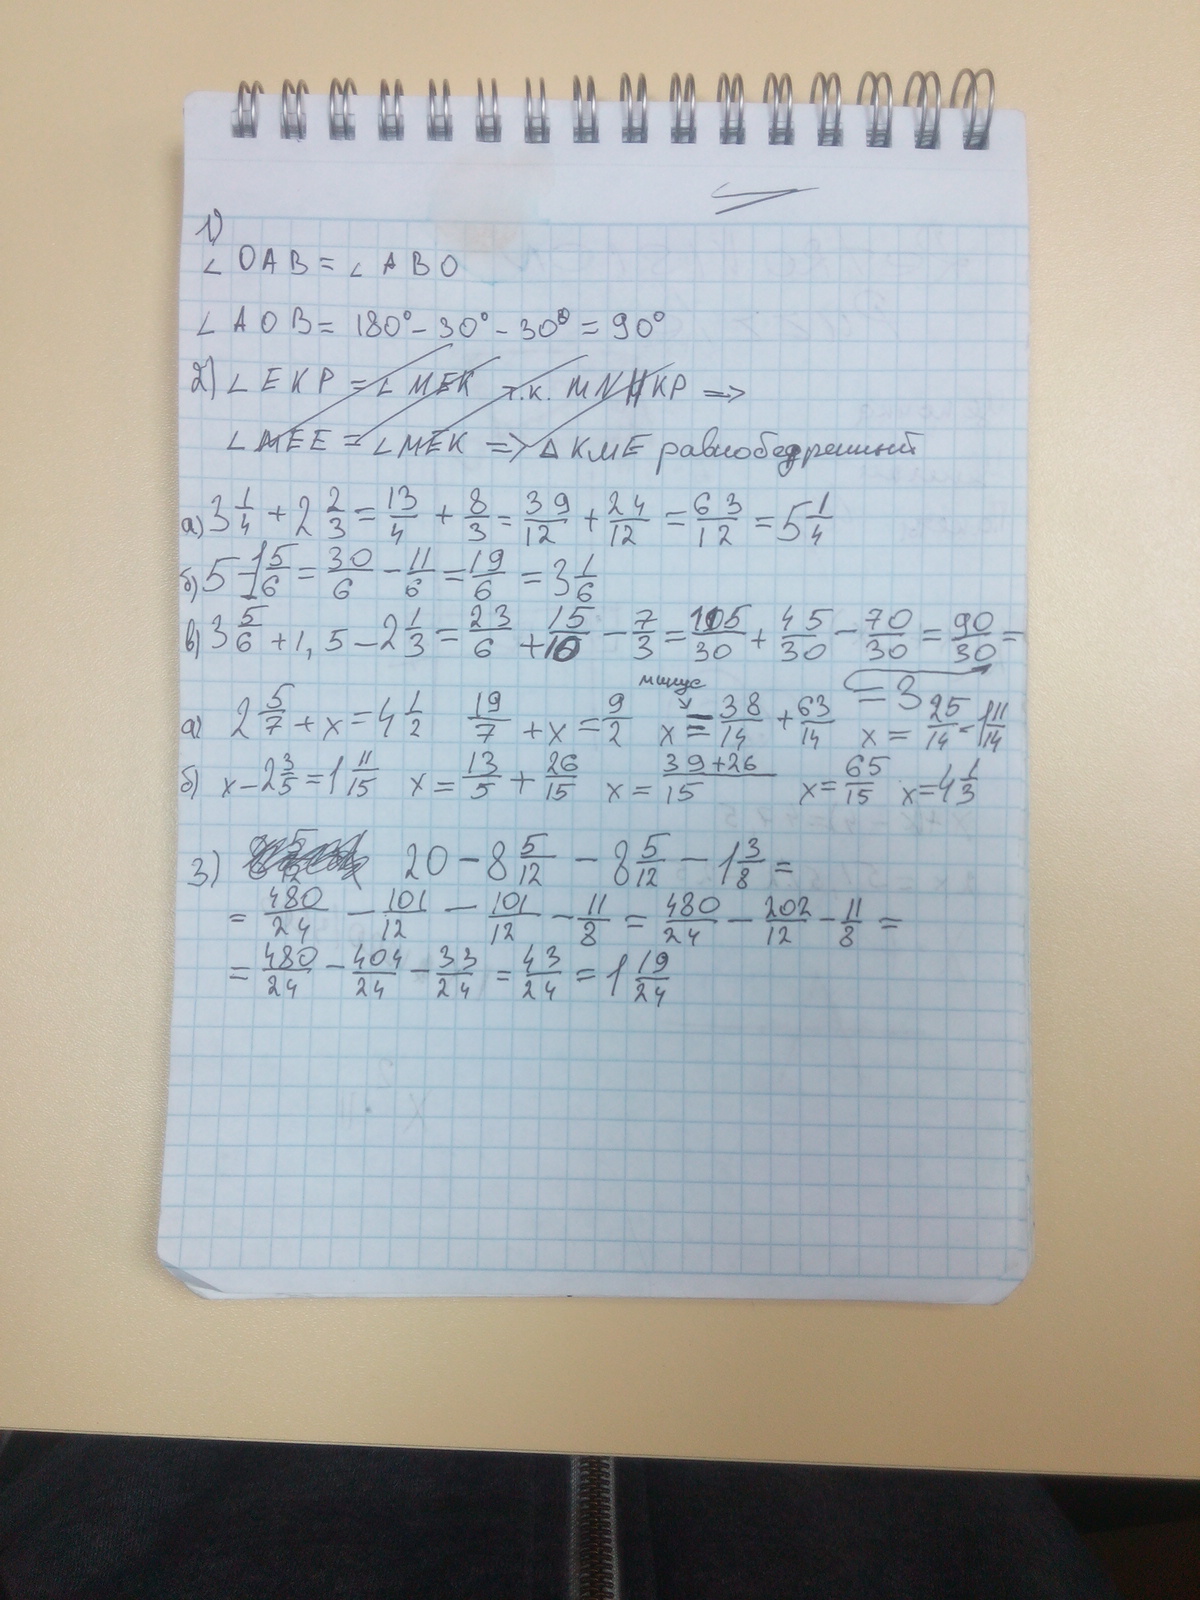 1)
∠ OAB = ∠ ABO
∠ AOB = 180° - 30° - 30° = 90°
2) ∠ EKP = ∠ MEK т.к. MN || KP =>
∠ MEE = ∠ MEK => Δ KME равнобедренный
а) 3 1/4 + 2 2/3 = 13/4 + 8/3 = 39/12 + 24/12 = 63/12 = 5 1/4
б) 5 - 1 5/6 = 30/6 - 11/6 = 19/6 = 3 1/6
в) 3 5/6 + 1,5 - 2 1/3 = 23/6 + 15/10 - 7/3 = 105/30 + 45/30 - 70/30 = 90/30 =
= 3
минус
а) 2 5/7 + x = 4 1/2 19/7 + x = 9/2 x = - 38/14 + 63/14 x = 25/14 = 1 11/14
б) x - 2 3/5 = 1 11/15 x = 13/5 + 26/15 x = 39+26/15 x = 65/15 x = 4 1/3
3) 20 - 8 5/12 - 8 5/12 - 1 3/8 =
= 480/24 - 101/12 - 101/12 - 11/8 = 480/24 - 202/12 - 11/8 =
= 480/24 - 404/24 - 33/24 = 43/24 = 1 19/24